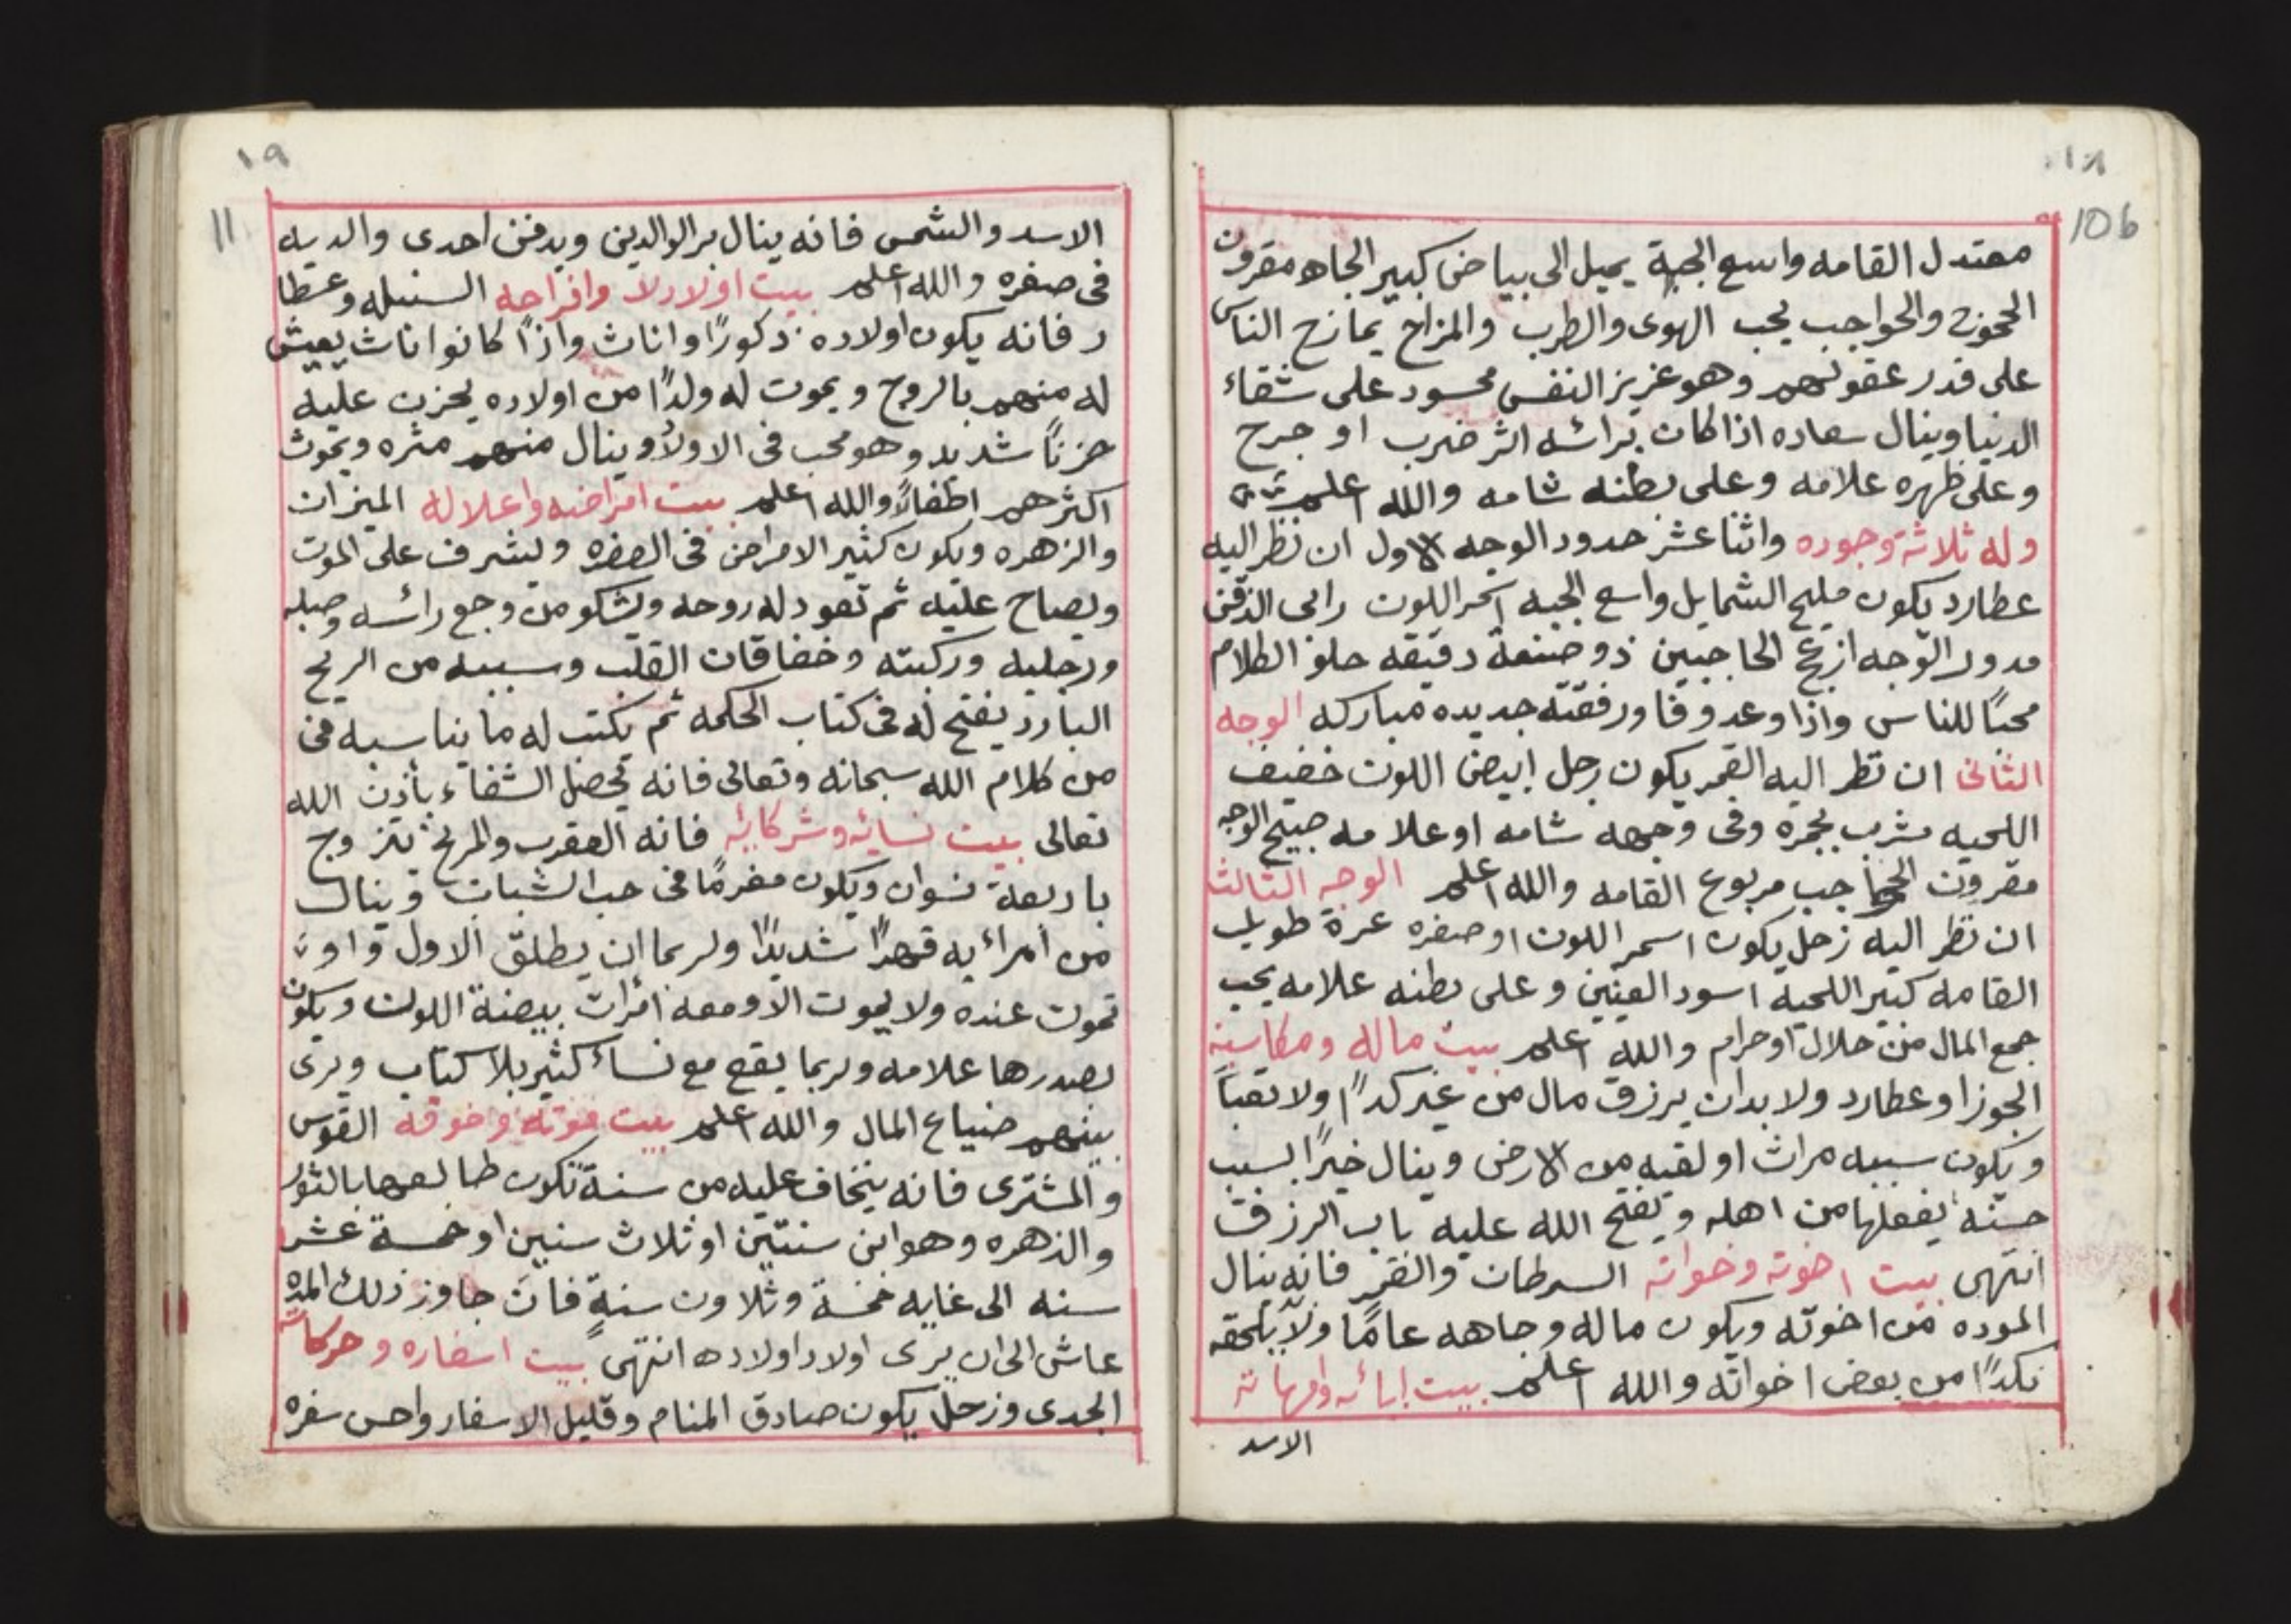 ١٨
106
معتدل القامه واسع الجبهة يميل الى بياض كبير الجاه مقرون
والحواجب يحب الهوى والطرب والمزاح يمازح الناس
على قدر عقولهم وهو عزيز النفس محسود على شقاء
الدنيا وينال سعاده اذا كان برائسه اثر ضرب او جرح
وعلى ظهره علامه وعلى بطنه شامه والله اعلم
وله ثلاثة وجوره واثنا عشر حدود الوجه الاول ان نظر اليه
عطارد يكون مليح الشمايل واسع الجبه اسحر اللون رابى الذقن
مدور الوجه ازج الحاجبين ذو صنعة دقيقه حلو الطلام
محبًا للناس واذا وعد وفا ورفقته جديده مباركه الوجه
الثانى ان نظر اليه القمر يكون رجل ابيض اللون خفيف
اللحيه مشرب بحمره وفى وجهه شامه او علامه صبيح الوجه
مقرون الحواجب مربوع القامه والله اعلم الوجه الثالث
ان نظر اليه زحل يكون اسمر اللون او صفره عرة طويل
القامه كبير اللحيه اسود العينين وعلى بطنه علامه يحب
جمع المال من حلال او حرام والله اعلم بيت ماله ومكاسبه
الجوزا وعطارد ولا بد ان يرزق مال من غير كدًا ولا تعبًا
ويكون سببه مراث او لقيه من الارض وينال خيرًا بسبب
حسنه يفعلها من اهله ويفتح الله عليه باب الرزق
انتهى بيت اخوته وخواته السرطان والقمر فانه ينال
الموده من اخوته ويكون ماله وجاهه عامًا ولا يلحقه
نكدًا من بعض اخواته والله اعلم بيت ابائه وامهاته
الاسد
١٩
11
الاسد والشمس فانه ينال بر الوالدين ويدفن احدى والديه
فى صغره والله اعلم بيت اولادلا وافراحه السنبله وعطا
رد فانه يكون اولاده ذكورًا واناث واذًا كانوا اناث يعيش
له منهم بالروح ويموت له ولدًا من اولاده يحزن عليه
حزنًا شديد وهو محب فى الاولاد وينال منهم مثره ويموت
اكثرهم اطفالًا والله اعلم بيت امراضه واعلاله الميزان
والزهره ويكون كثير الامراض فى الصغره ويشرف على الموت
ويصاح عليه ثم تعود له روحه ويشكو من وجع رائسه وصلبه
ورجليه وركبته وخفاقان القلب وسببه من الريح
البارد يفتح له فى كتاب الحكمه ثم يكتب له ما يناسبه فى
من كلام الله سبحانه وتعالى فانه يحصل الشفاء بأذن الله
تعالى بيت نسائه وشركائه فانه العقرب والمريخ يتزوج
باربعة نسوان ويكون مغرمًا فى حب الشبات وينال
من امراءيه قهرًا شديدًا ولربما ان يطلق الاول واو
تموت عنده ولا يموت الا ومعه امرات بيضة اللون ويكون
بصدرها علامه ولربما يقع مع نساء كثير بلا كتاب ويرى
بينهم ضياع المال والله اعلم بيت موته وخوفه القوس
والمشترى فانه يتخاف عليه من سنة تكون طالعها بالثور
والزهره وهو ابن سنتين او ثلاث سنين او خمسة عشر
سنه الى غايه خمسة وثلاون سنةٍ فان جاوز ذلك المده
عاش الى ان يرى اولاد اولاده انتهى بيت اسفاره وحركاته
الجدى وزحل يكون صادق المنام وقليل الاسفار واحسن سفره